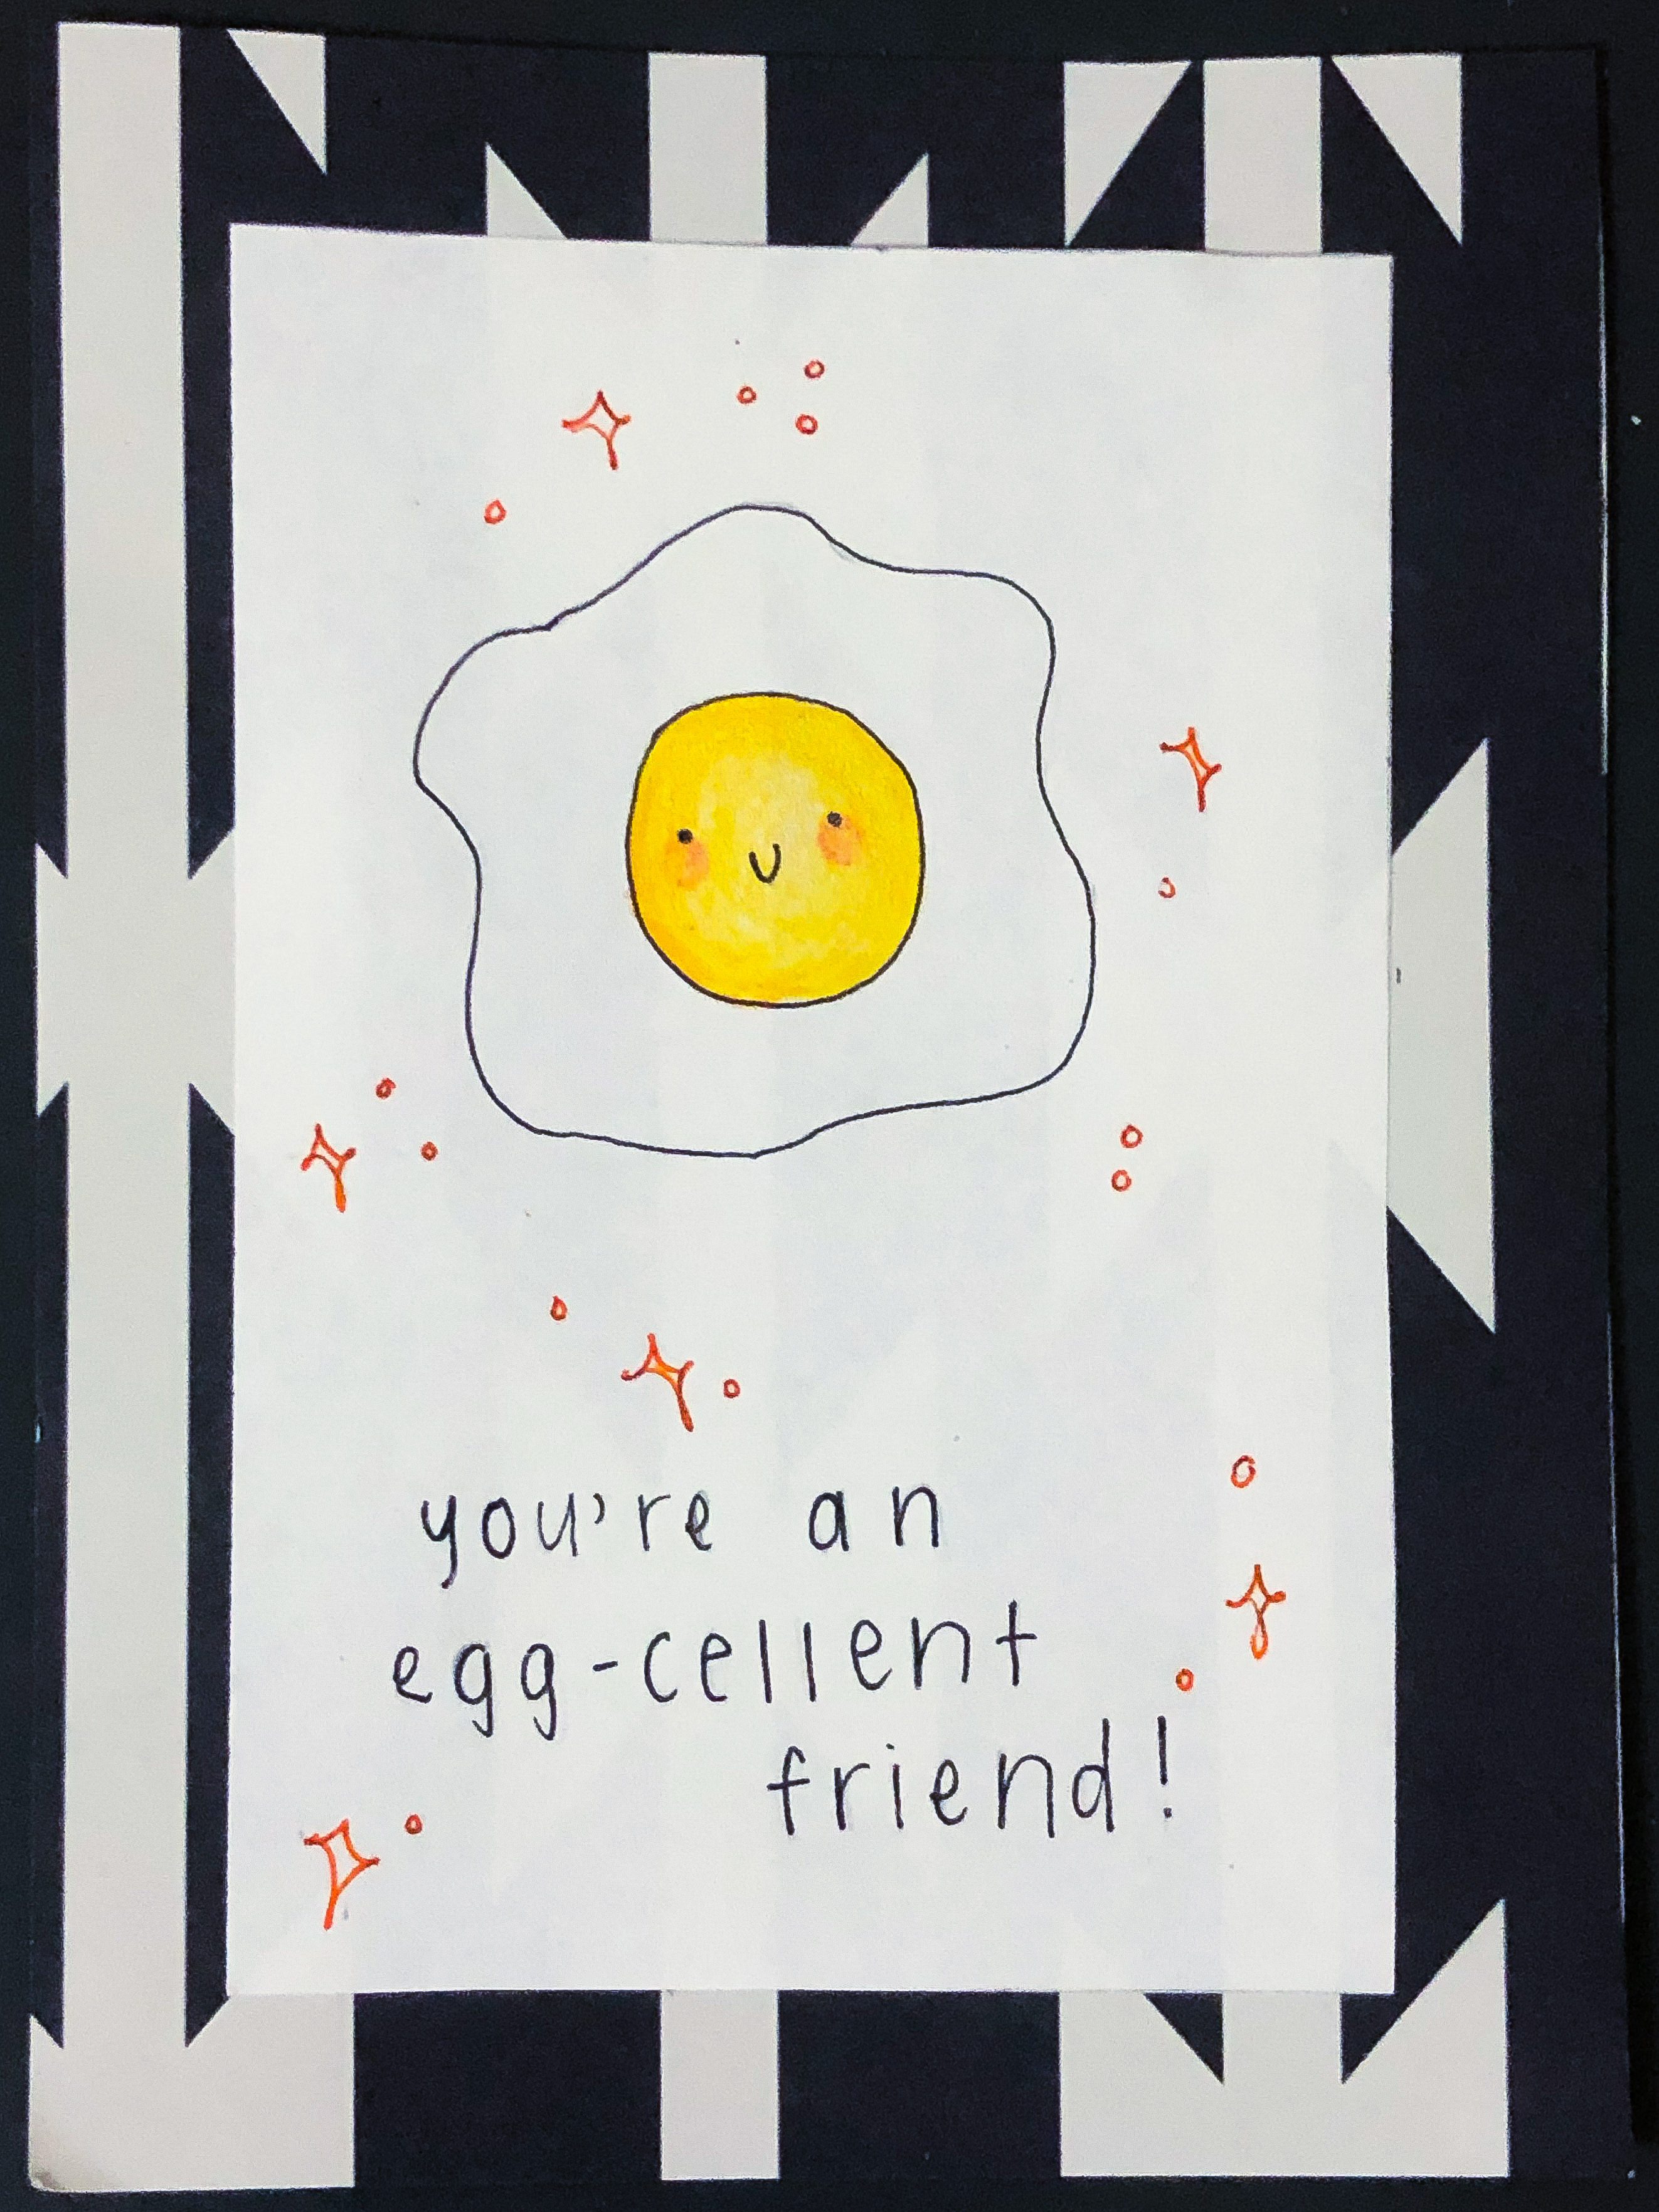 you're an
egg-cellent
friend!